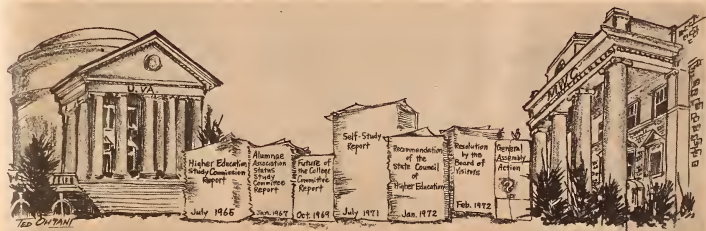 U.VA.
Higher Education
Study Commission
Report
July 1965
Alumnae
Association
Status
Study
Committee
Report
Jan. 1967
Future of
the College
Committee
Report
Oct. 1969
Self-Study
Report
July 1971
Recommendation
of the
State Council
of
Higher Education
Jan. 1972
Resolution
by the
Board of
Visitors
Feb. 1972
General
Assembly
Action
?
M.W.C.
TED OHTANI